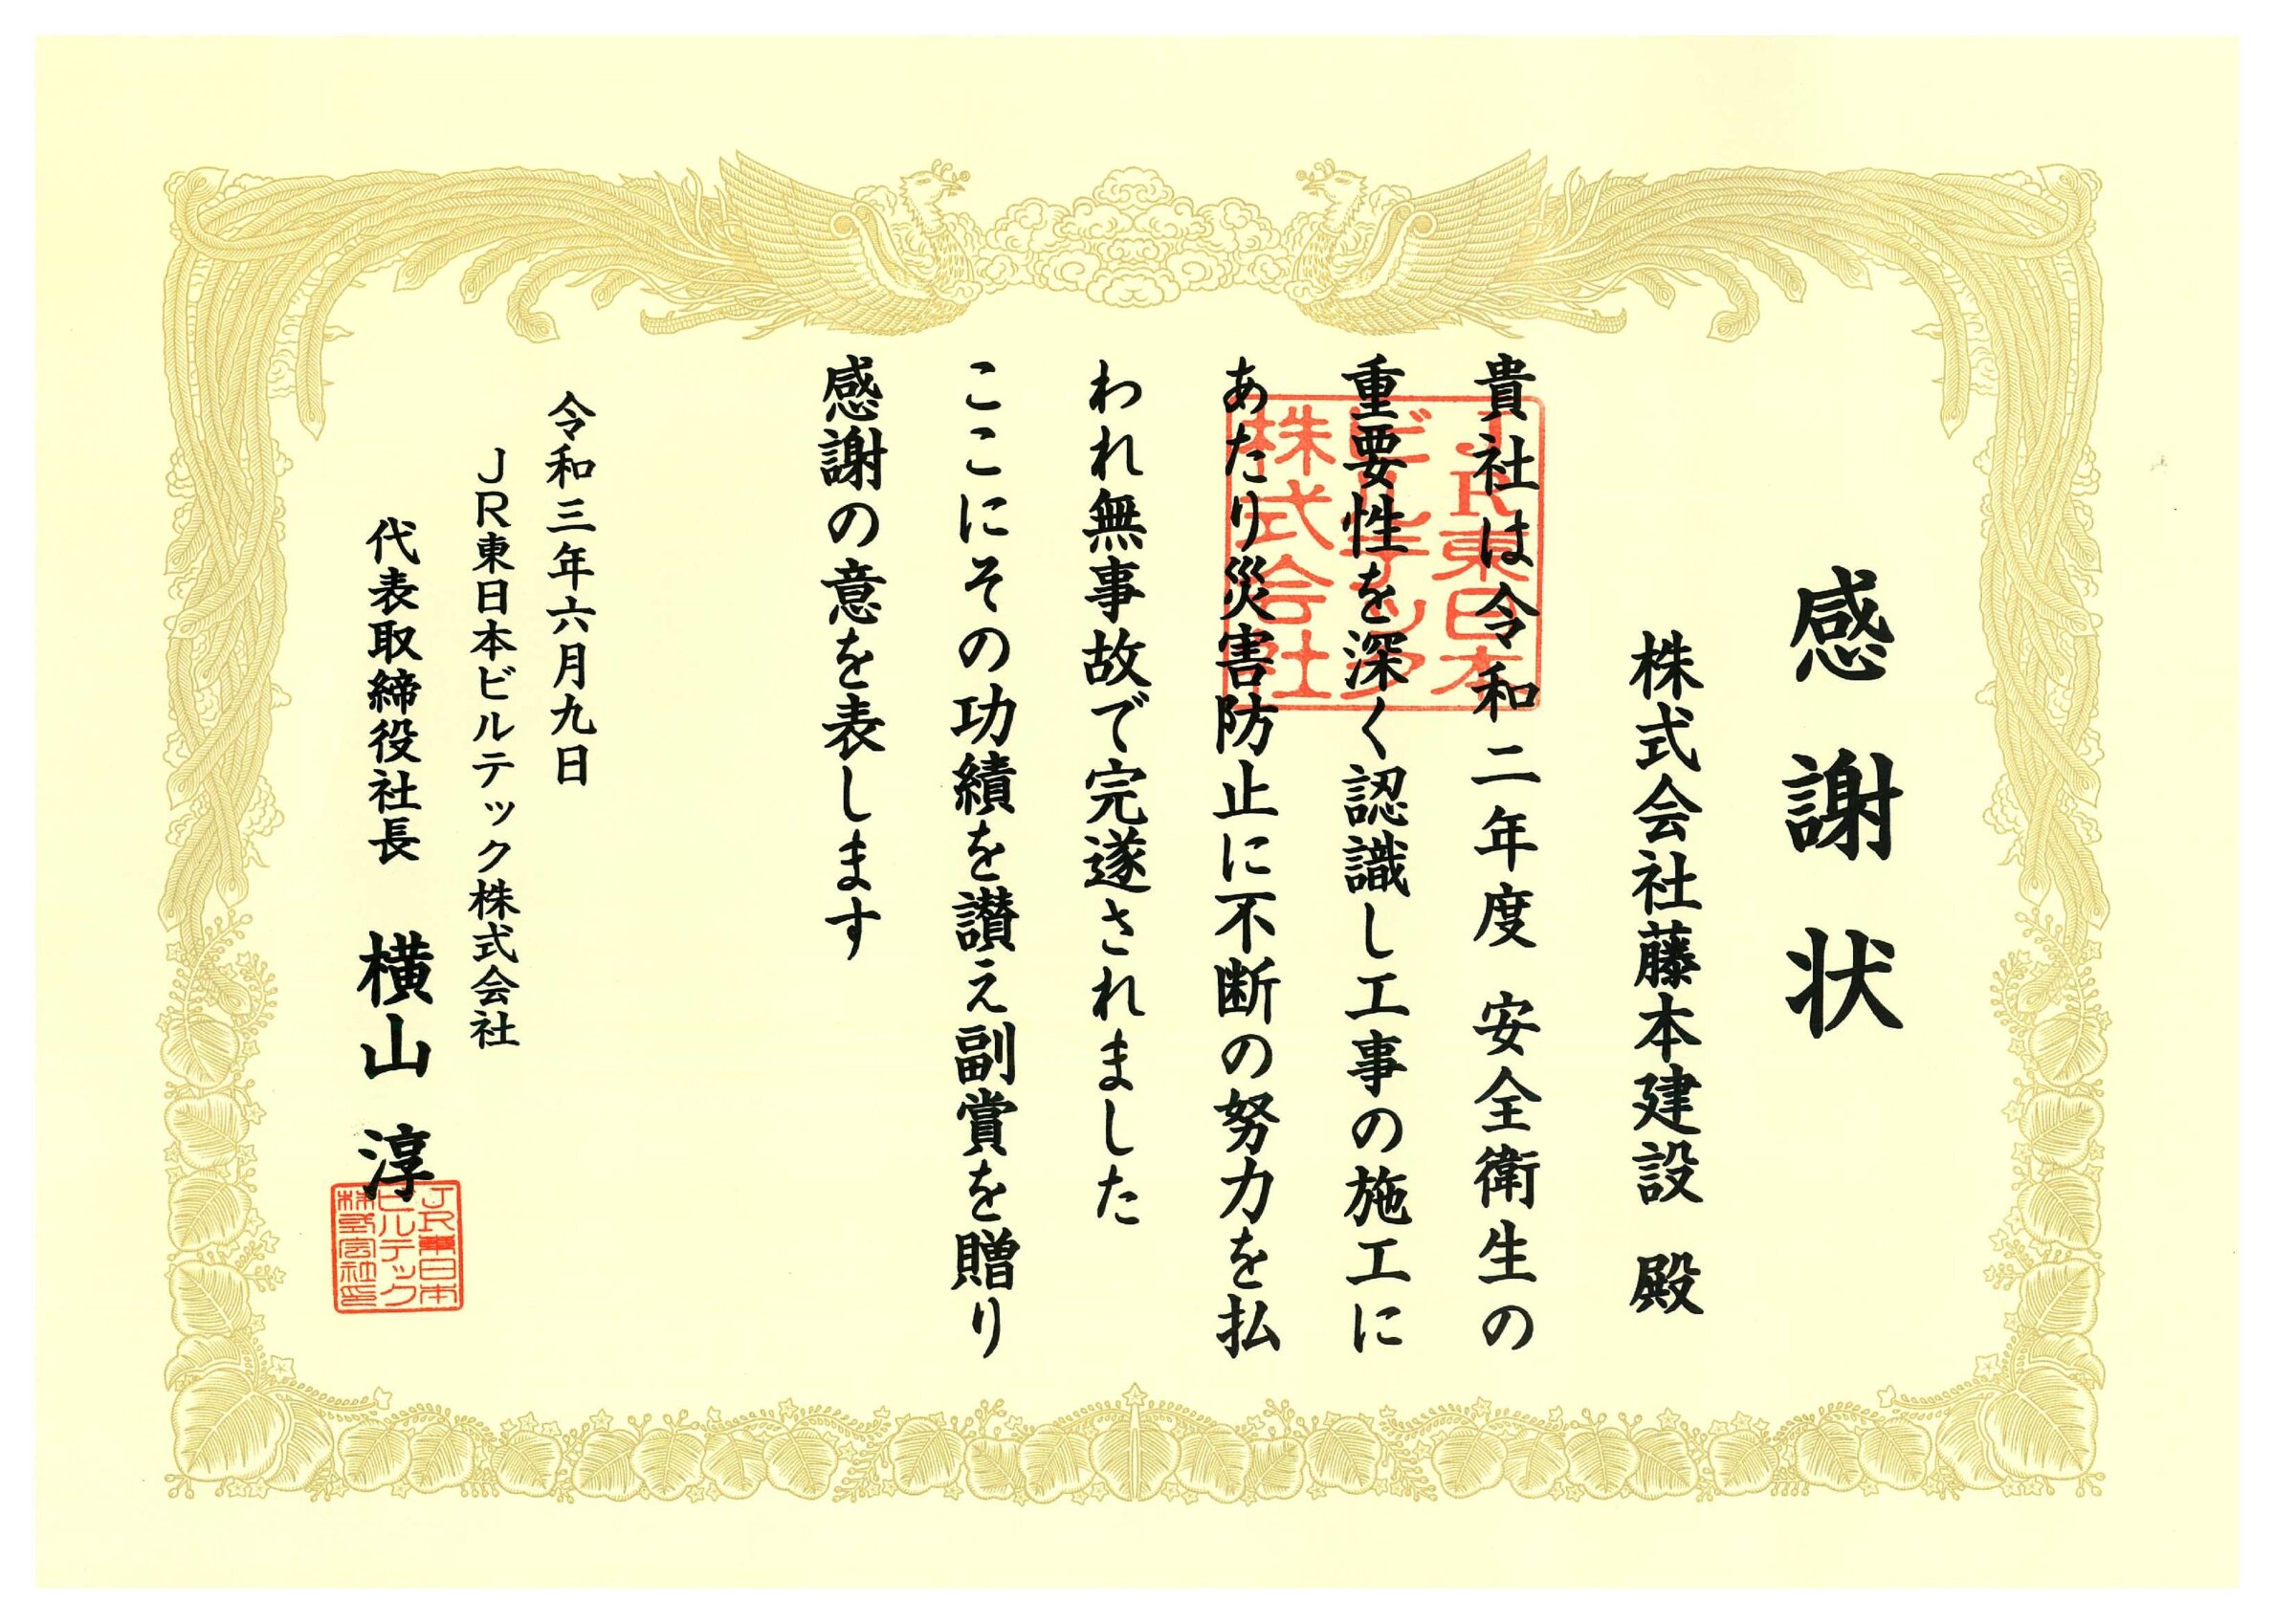 感謝状
株式会社藤本建設 殿
貴社は令和二年度 安全衛生の
重要性を深く認識し工事の施工に
あたり災害防止に不断の努力を払
われ無事故で完遂されました
ここにその功績を讃え副賞を贈り
感謝の意を表します
令和三年六月九日
JR東日本ビルテック株式会社
代表取締役社長 横山 淳
JR東日本
ビルテック
株式会社
JR東日本
ビルテック
株式会社印